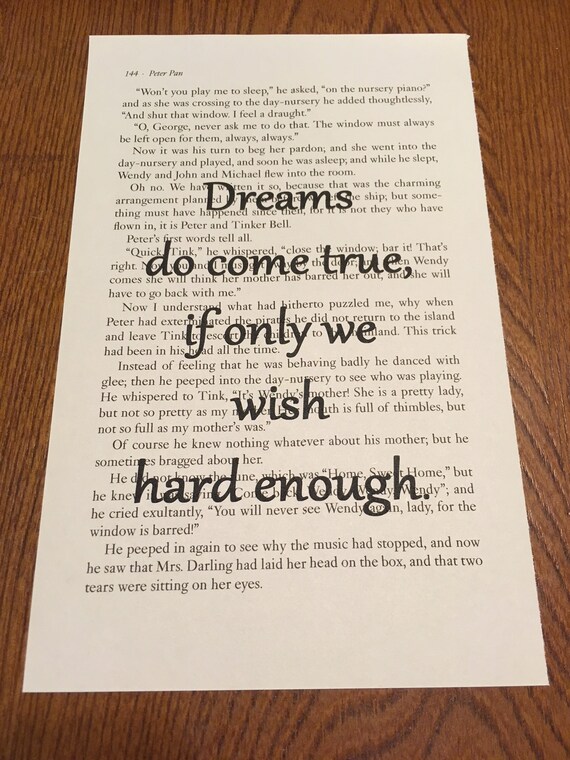 144 · Peter Pan
"Won't you play me to sleep," he asked, "on the nursery piano?"
and as she was crossing to the day-nursery he added thoughtlessly,
"And shut that window. I feel a draught."
"O, George, never ask me to do that. The window must always
be left open for them, always, always."
Now it was his turn to beg her pardon; and she went into the
day-nursery and played, and soon he was asleep; and while he slept,
Wendy and John and Michael flew into the room.
Oh no. We have written it so, because that was the charming
arrangement planned by the ship; but some-
Dreams
thing must have happened since then, for it is not they who have
flown in, it is Peter and Tinker Bell.
Peter's first words tell all.
"Quick Tink," he whispered, "close the window; bar it! That's
do come true,
right. Now you and I must get away by the door; and when Wendy
comes she will think her mother has barred her out, and she will
have to go back with me."
Now I understand what had hitherto puzzled me, why when
Peter had exterminated the pirates he did not return to the island
if only we
and leave Tink to escort the children to the mainland. This trick
had been in his head all the time.
Instead of feeling that he was behaving badly he danced with
glee; then he peeped into the day-nursery to see who was playing.
He whispered to Tink, "It's Wendy's mother! She is a pretty lady,
wish
but not so pretty as my mother. Her mouth is full of thimbles, but
not so full as my mother's was."
Of course he knew nothing whatever about his mother; but he
sometimes bragged about her.
He did not know the tune, which was "Home, Sweet Home," but
hard enough.
he knew it was saying, "Come back, Wendy, Wendy, Wendy"; and
he cried exultantly, "You will never see Wendy again, lady, for the
window is barred!"
He peeped in again to see why the music had stopped, and now
he saw that Mrs. Darling had laid her head on the box, and that two
tears were sitting on her eyes.